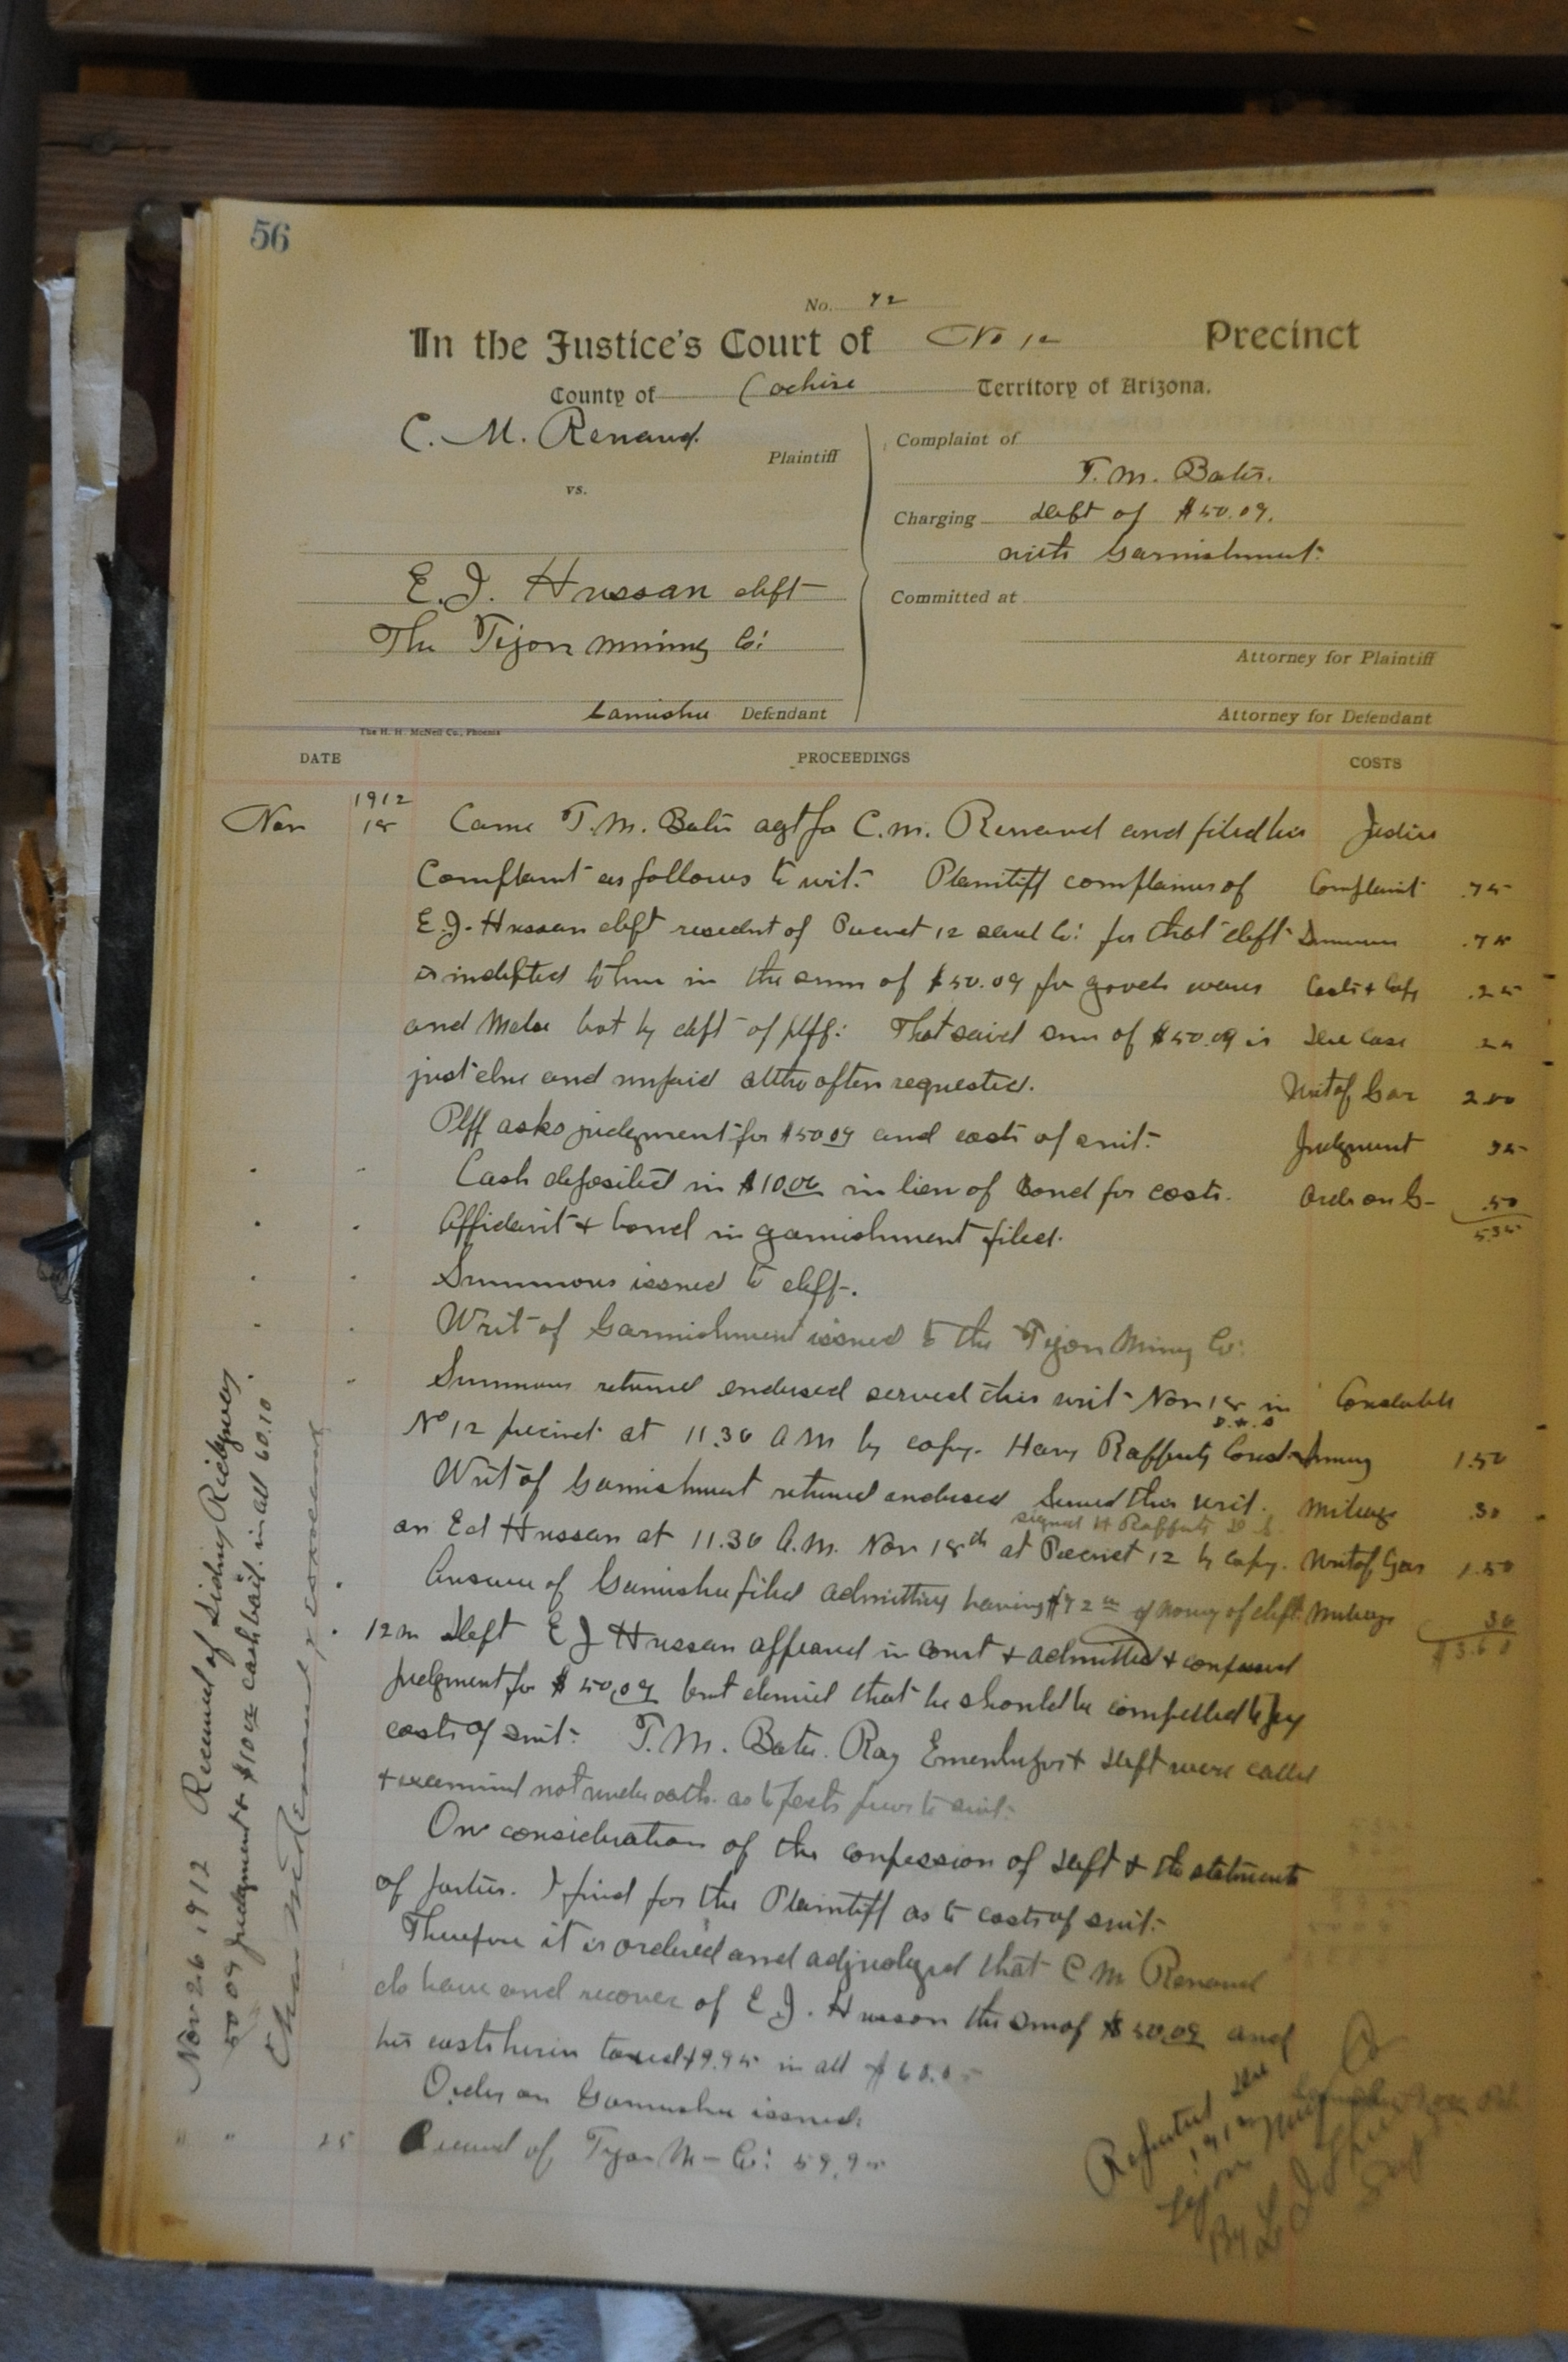 56
No. 72
In the Justice's Court of No 12 Precinct
County of Cochise Territory of Arizona.
C. M. Renaud.
Plaintiff
vs.
E. J. Hussan deft
The Tejon Mining Co:
Garnishee Defendant
Complaint of
T. M. Bates.
Charging debt of $50.09.
with Garnishment.
Committed at
Attorney for Plaintiff
Attorney for Defendant
The H. H. McNeil Co., Phoenix
DATE PROCEEDINGS COSTS
1912
Nov 18 Came T. M. Bates agt for C. M. Renaud and filed his Justice
Complaint as follows to wit. Plaintiff complains of Complaint .75
E. J. Hussan deft resident of Precinct 12 said Co: for that deft Summons .75
is indebted to him in the sum of $50.09 for goods wares Costs .25
and Mdse bot by deft of plff: That said sum of $50.09 is Case
just due and unpaid altho often requested. Writ of Gar 2.00
Plff asks judgment for $50.09 and costs of suit. Judgment
Cash deposited in $10.00 in lieu of Bond for costs. Order on G- .50
Affidavit & bond in garnishment filed. 5.35
Summons issued to deft.
Writ of Garnishment issued to the Tejon Mining Co:
Summons returned endorsed served this writ Nov 18 in Constable
No 12 precinct at 11.30 A M by copy. Harry Rafferty Const 1.50
Writ of Garnishment returned endorsed Served this writ. Mileage .30
signed H Rafferty
on Ed Hussan at 11.30 A.M. Nov 18th at Precinct 12 by copy. Writ of Gar 1.50
Answer of Garnishee filed admitting having $72 of money of deft. Mileage 30
12 m Deft E J Hussan appeared in court & admitted & confessed $3.60
Judgment for $50.09 but denied that he should be compelled to pay
costs of suit. T. M. Bates. Ray & Deft were called
& examined not under oath. as to facts prior to suit.
On consideration of the confession of Deft & the statements
of parties. I find for the Plaintiff as to costs of suit.
Therefore it is ordered and adjudged that C M Renaud
do have and recover of E. J. Hussan the sum of $50.09 and
his costs herein taxed $9.95 in all $60.0
Order on Garnishee issued.
" " 25 Received of Tejon M- Co: 59.95
Nov 26 1912 Received of Sidney Ridgway
50 09 Judgment & $10 cash bail in all 60.10
Renaud
Tejon
By